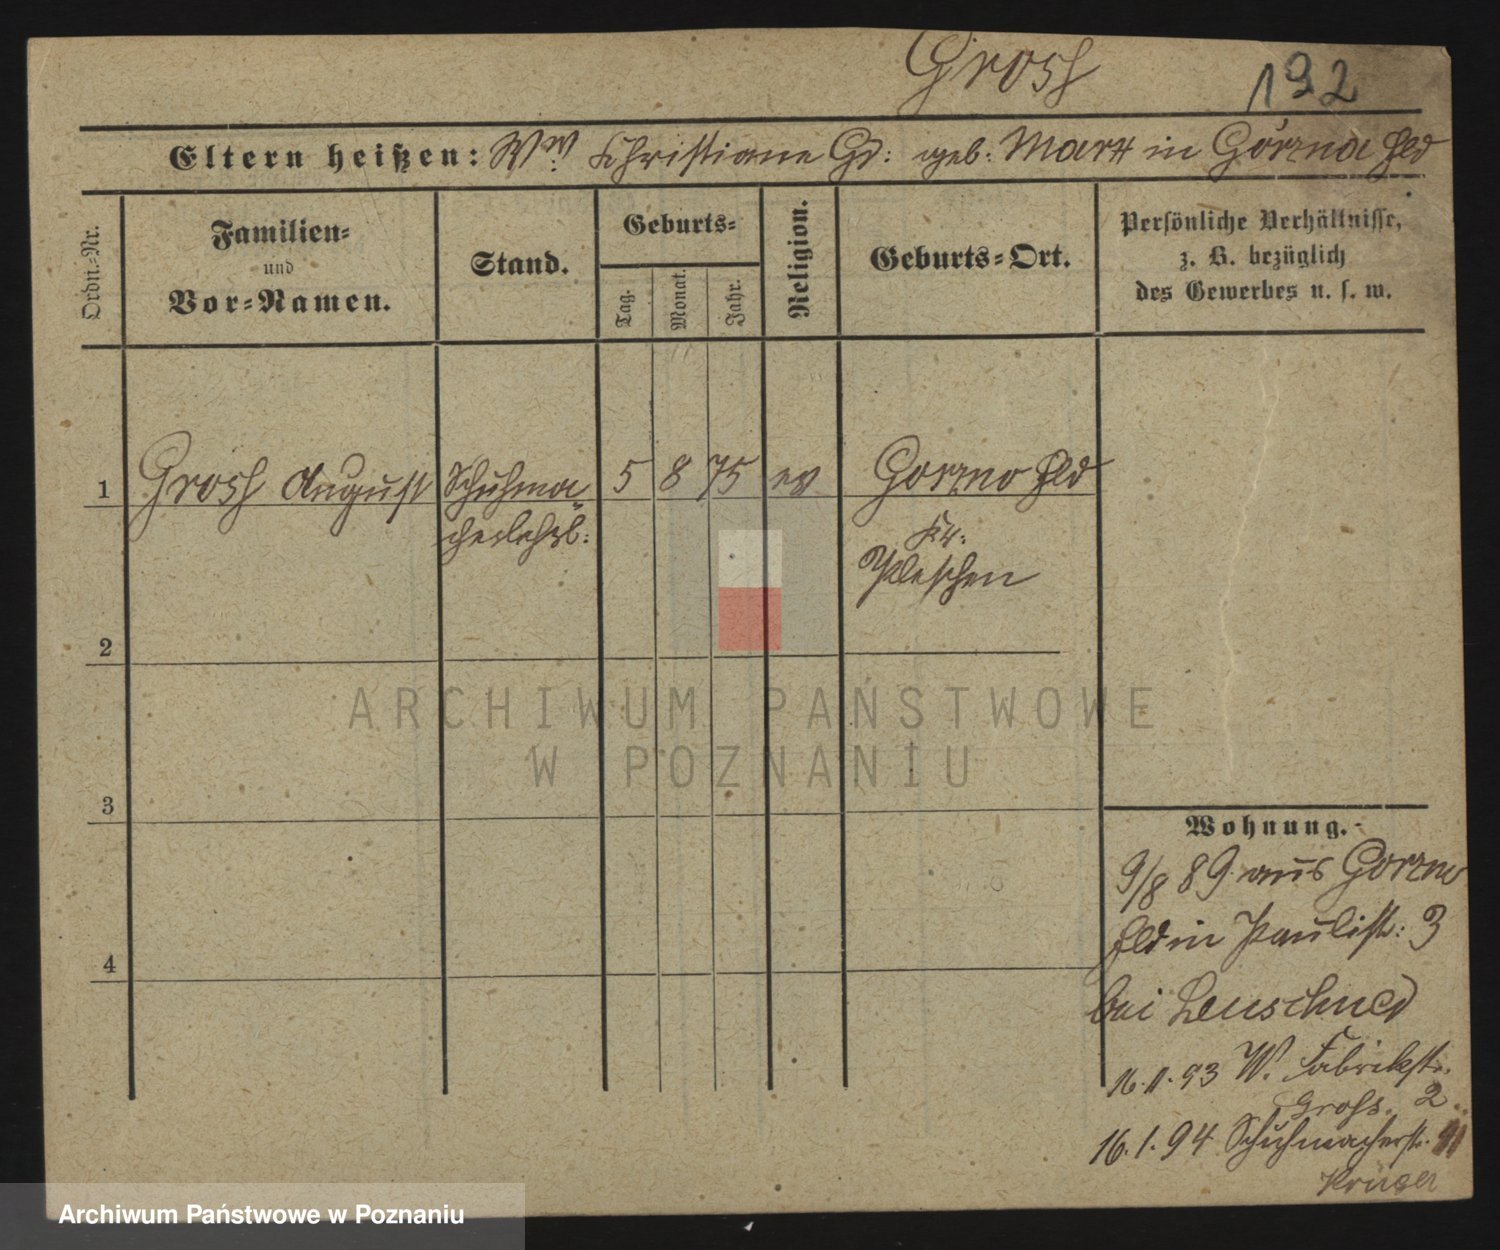 Grosh 192
Eltern heißen: Ww. Christiane G. geb. Marx in Górzna Hld
Ordn.-Nr.
Familien-
und
Vor-Namen.
Stand.
Geburts-
Tag. Monat. Jahr.
Religion.
Geburts-Ort.
Persönliche Verhältnisse,
z. B. bezüglich
des Gewerbes u. s. w.
1 Grosh August Schuhma- 5 8 75 ev Gorzno Hld
cherlehrl: Kr.
Pleschen
2
3
4
Wohnung.
9/8 89 aus Gorzno
Hld in Paulistr: 3
bei Leuschner
16.11.93 W. Fabrikstr.
2
16.1.94 Schuhmacherstr. 11
Krüger
ARCHIWUM PAŃSTWOWE
W POZNANIU
Archiwum Państwowe w Poznaniu